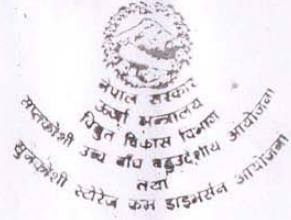 नेपाल सरकार
ऊर्जा मन्त्रालय
विद्युत विकास विभाग
सप्तकोशी उच्च बाँध बहुउद्देशीय आयोजना
तथा
सुनकोशी स्टोरेज कम डाइभर्सन आयोजना